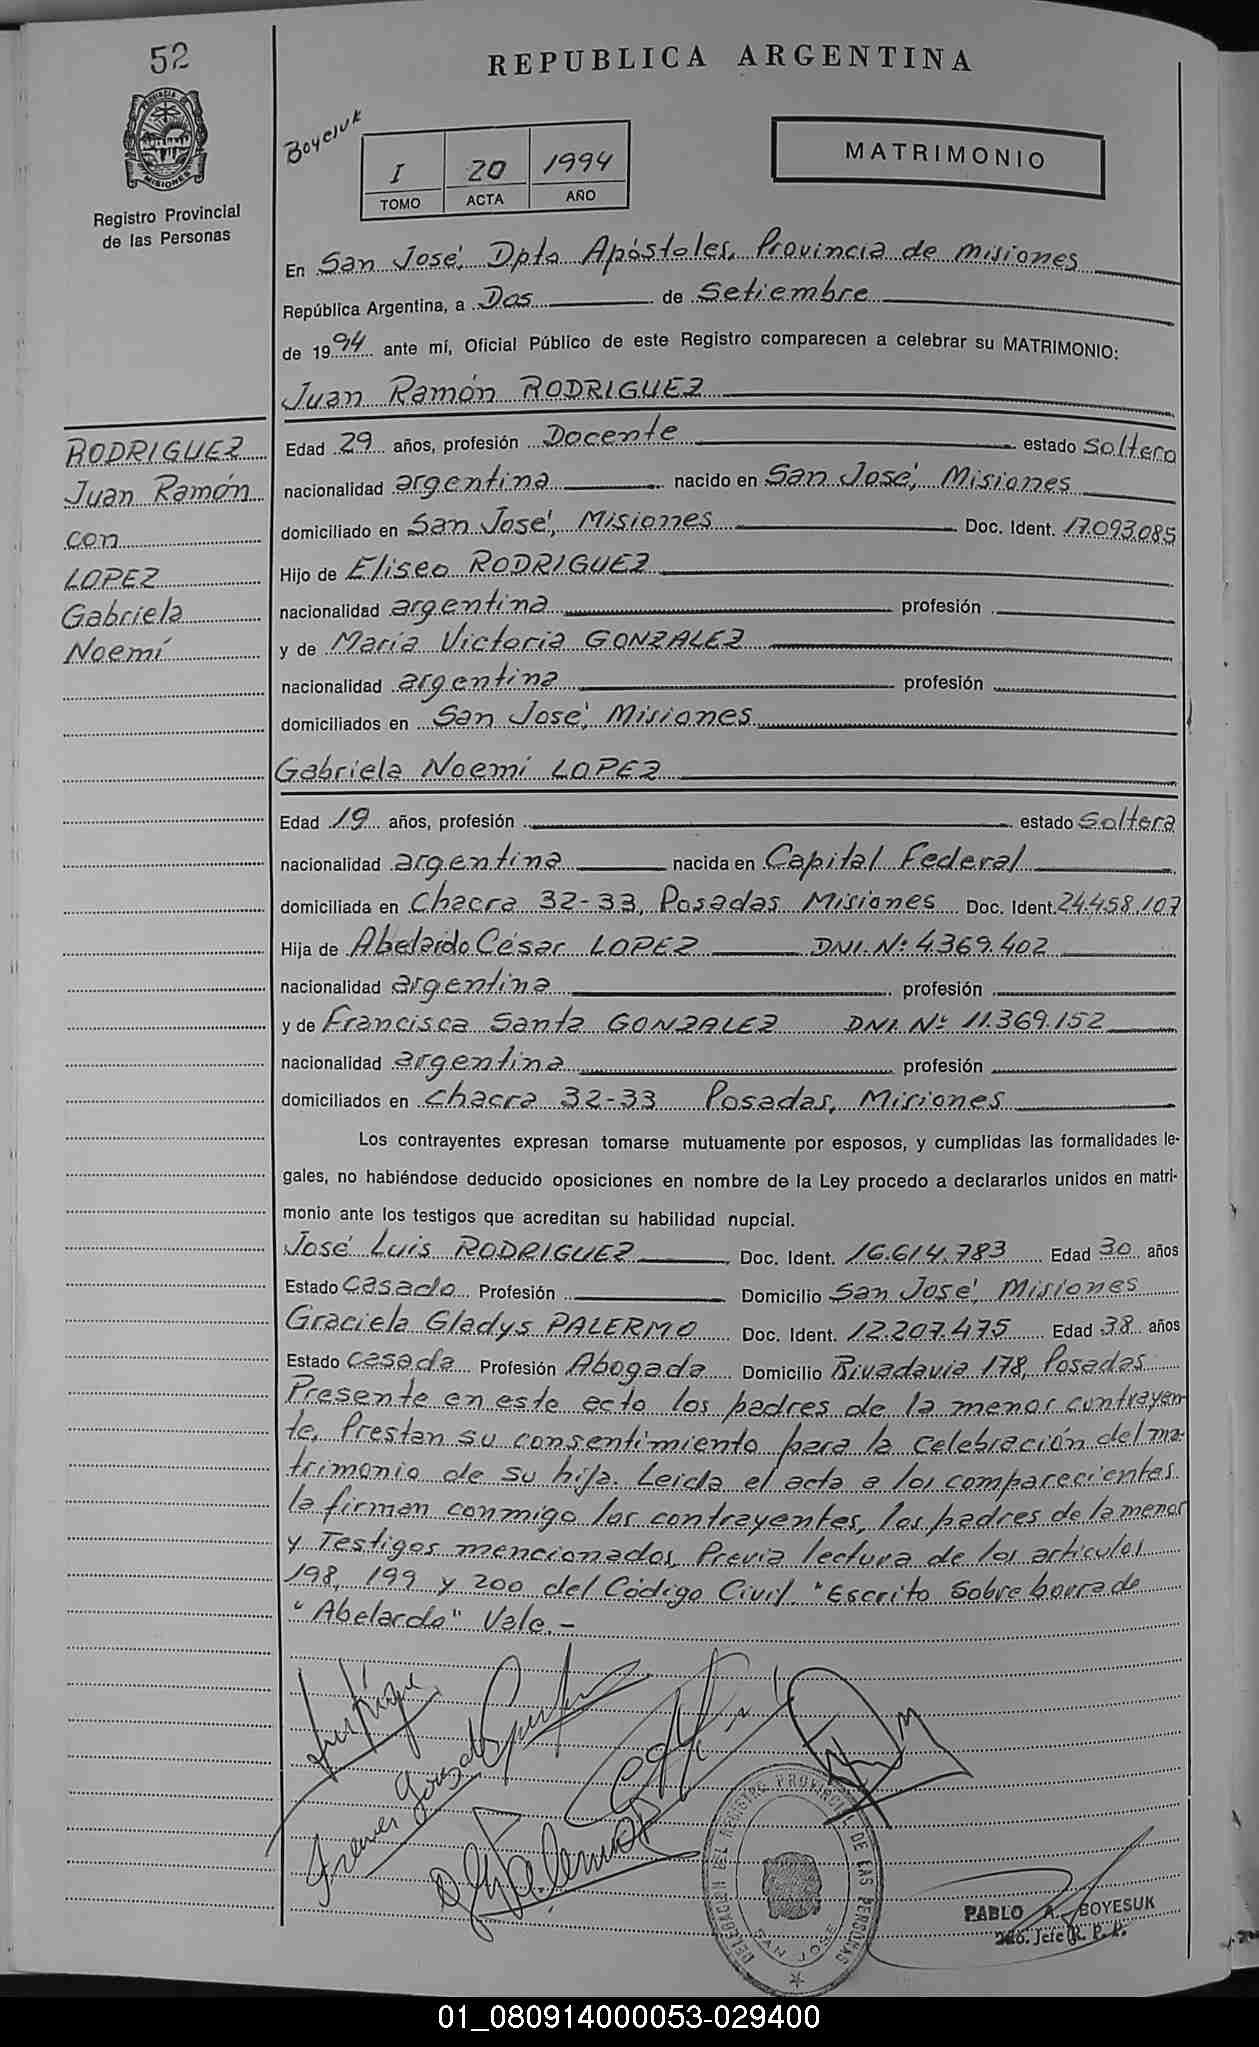 52
REPUBLICA ARGENTINA
PROVINCIA DE MISIONES
Registro Provincial
de las Personas
Boyesuk
I 20 1994
TOMO ACTA AÑO
MATRIMONIO
En San José, Dpto Apóstoles, Provincia de Misiones
República Argentina, a Dos de Setiembre
de 1994 ante mí, Oficial Público de este Registro comparecen a celebrar su MATRIMONIO:
Juan Ramón RODRIGUEZ
RODRIGUEZ
Juan Ramón
con
LOPEZ
Gabriela
Noemí
Edad 29 años, profesión Docente estado Soltero
nacionalidad argentina nacido en San José, Misiones
domiciliado en San José, Misiones Doc. Ident. 17.093.085
Hijo de Eliseo RODRIGUEZ
nacionalidad argentina profesión
y de María Victoria GONZALEZ
nacionalidad argentina profesión
domiciliados en San José, Misiones
Gabriela Noemí LOPEZ
Edad 19 años, profesión estado Soltera
nacionalidad argentina nacida en Capital Federal
domiciliada en Chacra 32-33, Posadas Misiones Doc. Ident. 24.458.107
Hija de Abelardo César LOPEZ DNI. Nº 4.369.402
nacionalidad argentina profesión
y de Francisca Santa GONZALEZ DNI. Nº 11.369.152
nacionalidad argentina profesión
domiciliados en Chacra 32-33 Posadas, Misiones
Los contrayentes expresan tomarse mutuamente por esposos, y cumplidas las formalidades le-
gales, no habiéndose deducido oposiciones en nombre de la Ley procedo a declararlos unidos en matri-
monio ante los testigos que acreditan su habilidad nupcial.
José Luis RODRIGUEZ Doc. Ident. 16.614.783 Edad 30 años
Estado Casado Profesión Domicilio San José, Misiones
Graciela Gladys PALERMO Doc. Ident. 12.207.475 Edad 38 años
Estado Casada Profesión Abogada Domicilio Rivadavia 178, Posadas
Presente en este acto los padres de la menor contrayen-
te, Prestan su consentimiento para la celebración del ma-
trimonio de su hija. Leida el acta a los comparecientes
la firman conmigo los contrayentes, los padres de la menor
y Testigos mencionados, Previa lectura de los articulos
198, 199 y 200 del Código Civil. "Escrito sobre borrado
"Abelardo" Vale.-
DELEGACION DEL REGISTRO PROVINCIAL DE LAS PERSONAS
SAN JOSE
PABLO A. BOYESUK
Jefe R. P. P.
01_080914000053-029400